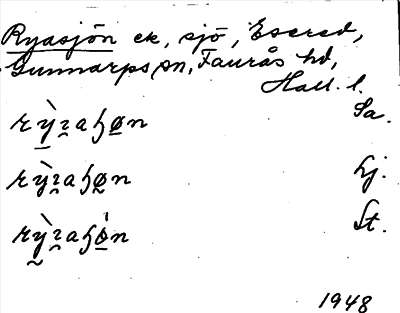 Ryasjön ek, sjö, Esered,
Gunnarps sn, Faurås hd,
Hall. l.
rỳ̱ɿ̰aɧø̱n Sa.
rỳɿ̰aɧø̰n Lj.
rỳ̰ɿ̰aɧǿ̱n St.
1948